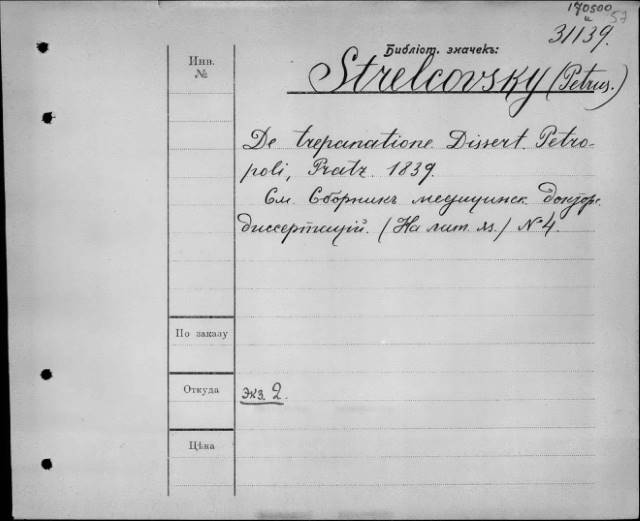 170500
57
31139.
Библіот. значекъ:
Инв.
№
Strelcovsky (Petrus.)
De trepanatione Dissert. Petro-
poli, Pratz. 1839.
См. Сборникъ медицинск. доктор.
диссертацій. (На лат. яз.) N 4.
По заказу
Откуда
экз. 2.
Цѣна